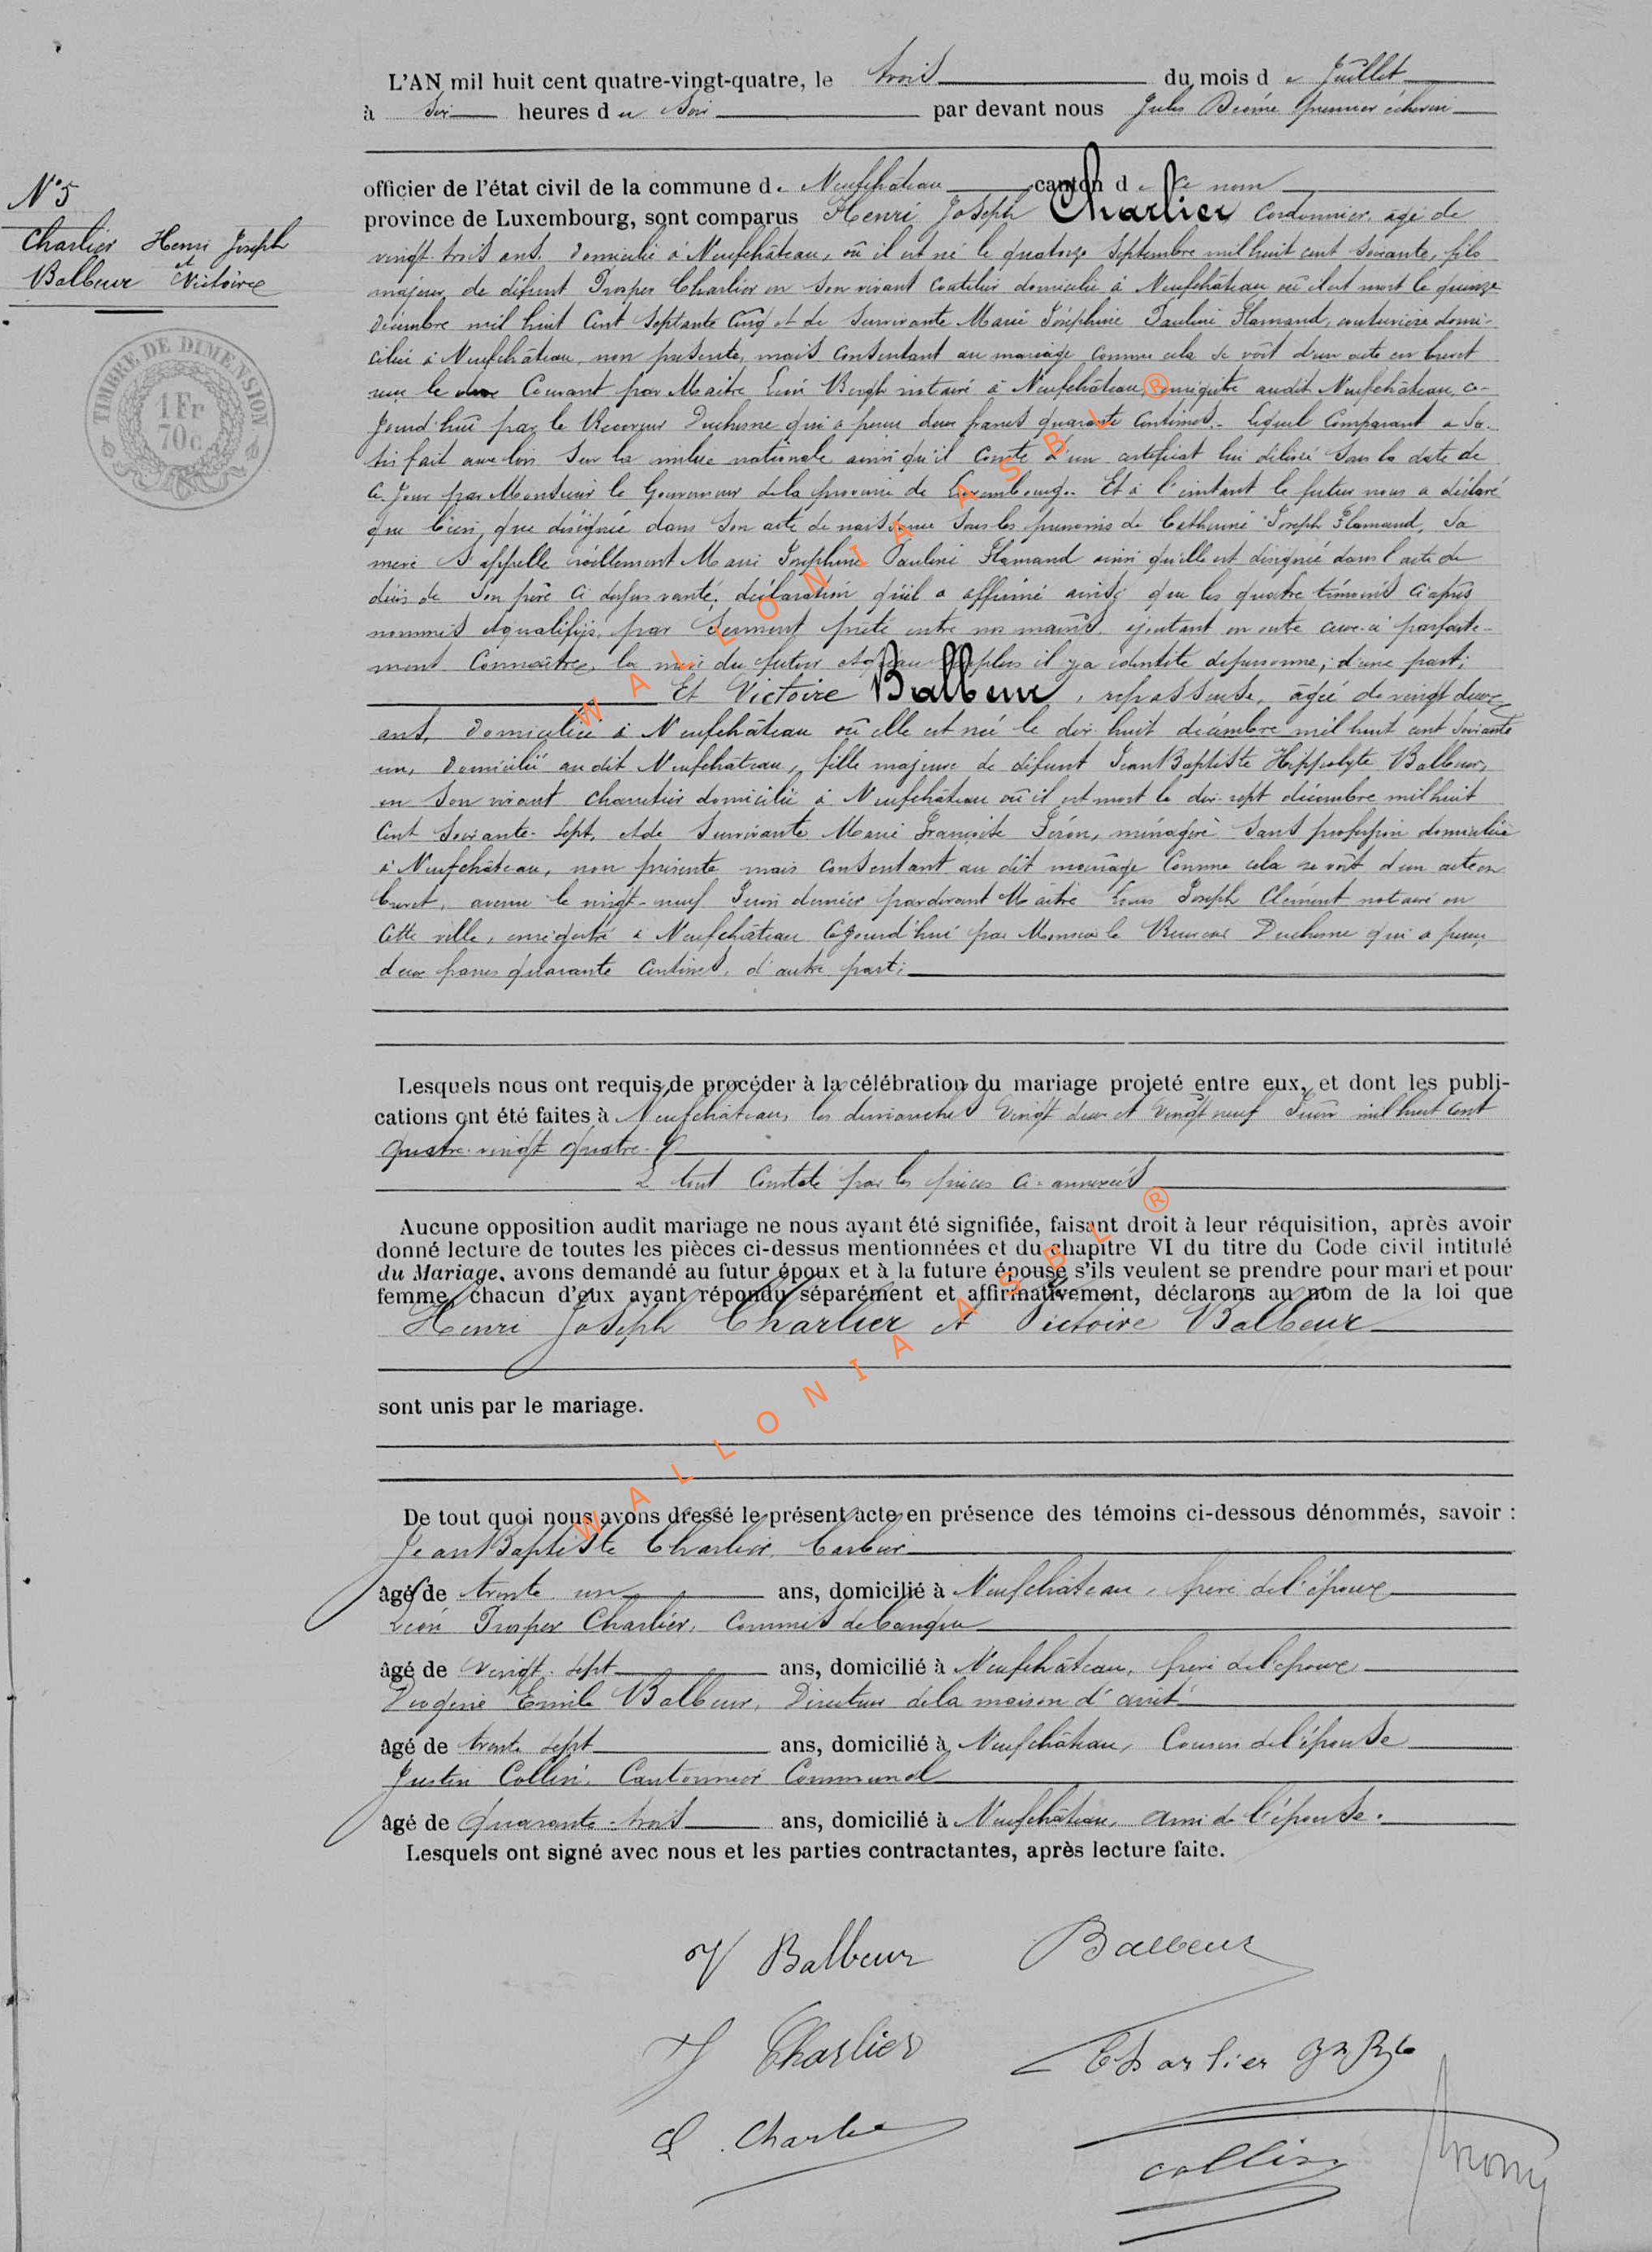 L'AN mil huit cent quatre-vingt-quatre, le trois du mois de Juillet
à six heures du soir par devant nous Jules premier échevin
N° 5
Charlier Henri Joseph
et
Balbeur Victoire
TIMBRE DE DIMENSION
1 Fr
70c
officier de l'état civil de la commune de Neufchâteau canton de ce nom
province de Luxembourg, sont comparus Henri Joseph Charlier cordonnier, âgé de
vingt-trois ans, domicilié à Neufchâteau, où il est né le quatorze Septembre mil huit cent soixante, fils
majeur de défunt Prosper Charlier en son vivant coutelier domicilié à Neufchâteau où il est mort le quinze
décembre mil huit cent septante cinq et de survivante Marie Joséphine Pauline Flamand, couturière domi-
ciliée à Neufchâteau, non présente, mais consentant au mariage comme cela se voit d'un acte en brevet
reçu le deux courant par Maître notaire à Neufchâteau, enregistré audit Neufchâteau, ce-
jourd'hui par le Receveur Duchesne qui a perçu deux francs quarante centimes. Lequel comparant a sa-
tisfait aux lois sur la milice nationale ainsi qu'il conste d'un certificat lui délivré sous la date de
ce jour par Monsieur le Gouverneur de la province de Luxembourg. Et à l'instant le futur nous a déclaré
que bien que désignée dans son acte de naissance sous les prénoms de Catherine Joseph Flamand, sa
mère s'appelle réellement Marie Joséphine Pauline Flamand ainsi qu'elle est désignée dans l'acte de
décès de son père ci dessus vanté; déclaration qu'il a affirmé ainsi que les quatre témoins ci-après
nommés et qualifiés, par serment prêté entre nos mains, ajoutant en outre ceux-ci parfaite-
ment connaître la mère du futur il y a identité de personne; d'une part;
Et Victoire Balbeur, repasseuse, âgée de vingt deux
ans, domiciliée à Neufchâteau où elle est née le dix huit décembre mil huit cent soixante
un, domiciliée au dit Neufchâteau, fille majeure de défunt Jean Baptiste Hippolyte Balbeur,
en son vivant domicilié à Neufchâteau où il est mort le dix-sept décembre mil huit
cent soixante-sept, et de survivante Marie Françoise ménagère sans profession domiciliée
à Neufchâteau, non présente mais consentant au dit mariage comme cela se voit d'un acte en
brevet, avenu le vingt-neuf Juin dernier pardevant Maître Louis Joseph Clément notaire en
cette ville, enregistré à Neufchâteau cejourd'hui par Monsieur le Receveur Duchesne qui a perçu
deux francs quarante centimes, d'autre part;
Lesquels nous ont requis de procéder à la célébration du mariage projeté entre eux, et dont les publi-
cations ont été faites à Neufchâteau, les dimanches vingt deux et vingt neuf Juin mil huit cent
quatre-vingt quatre.
Le tout constaté par les pièces ci-annexées
Aucune opposition audit mariage ne nous ayant été signifiée, faisant droit à leur réquisition, après avoir
donné lecture de toutes les pièces ci-dessus mentionnées et du chapitre VI du titre du Code civil intitulé
du Mariage, avons demandé au futur époux et à la future épouse s'ils veulent se prendre pour mari et pour
femme, chacun d'eux ayant répondu séparément et affirmativement, déclarons au nom de la loi que
Henri Joseph Charlier et Victoire Balbeur
sont unis par le mariage.
De tout quoi nous avons dressé le présent acte en présence des témoins ci-dessous dénommés, savoir :
Jean Baptiste Charlier, barbier
âgé de trente un ans, domicilié à Neufchâteau, frère de l'époux
Léon Prosper Charlier, commis de banque
âgé de vingt-sept ans, domicilié à Neufchâteau, frère de l'époux
Emile Balbeur, Directeur de la maison d'arrêt
âgé de trente sept ans, domicilié à Neufchâteau, cousin de l'épouse
Justin Collin, Cantonnier Communal
âgé de quarante-trois ans, domicilié à Neufchâteau, ami de l'épouse.
Lesquels ont signé avec nous et les parties contractantes, après lecture faite.
V Balbeur Balbeur
J Charlier Charlier
L. Charlier
Collin
WALLONIA ASBL ®
WALLONIA ASBL ®